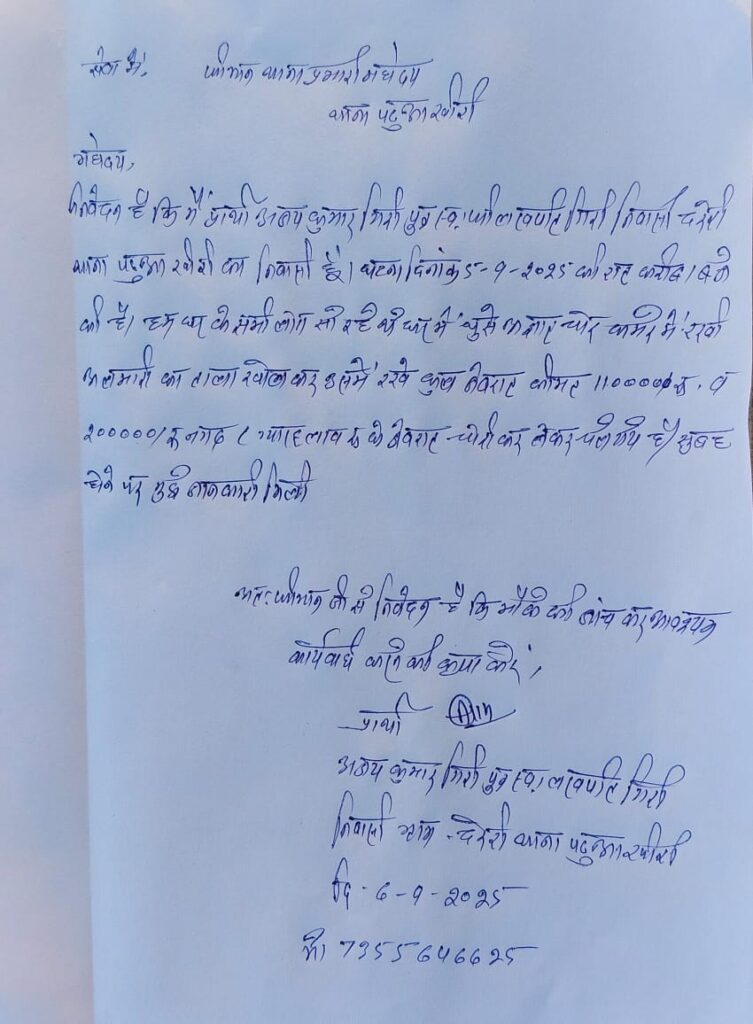 सेवा में, श्रीमान थाना प्रभारी महोदय
थाना पढुआ खीरी
महोदय,
निवेदन है कि मैं प्रार्थी अजय कुमार गिरी पुत्र स्व. श्री लखपति गिरी निवासी
थाना पढुआ खीरी का निवासी हूँ। घटना दिनांक 5-9-2025 की रात करीब 1 बजे
की है। हम घर के सभी लोग सो रहे थे घर में घुसे अज्ञात चोर कमरे में रखी
अलमारी का ताला खोलकर उसमें रखे कुल जेवरात कीमत 1100000/रु. व
200000/रु नगद ( ग्यारह लाख रु के जेवरात चोरी कर लेकर चले गये है। सुबह
होने पर मुझे जानकारी मिली
अतः श्रीमान जी से निवेदन है कि मौके की जांच कर आवश्यक
कार्यवाही करने की कृपा करें,
प्रार्थी
अजय कुमार गिरी पुत्र स्व. लखपति गिरी
निवासी ग्राम - थाना पढुआ खीरी
दि - 6-9-2025
मो 7355646625